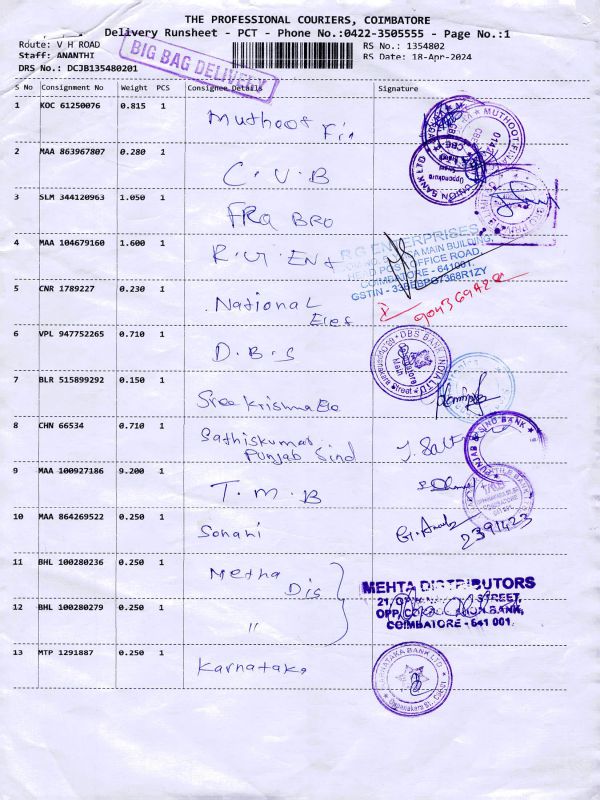 THE PROFESSIONAL COURIERS, COIMBATORE
Delivery Runsheet - PCT - Phone No.:0422-3505555 - Page No.:1
Route: V H ROAD
RS No.: 1354802
Staff: ANANTHI
RS Date: 18-Apr-2024
DRS No.: DCJB135480201
BIG BAG DELIVERY
S No Consignment No Weight PCS Consignee Details Signature
1 KOC 61250076 0.815 1 Muthoot Fin
MUTHOOT FINANC
2 MAA 863967807 0.280 1 C.U.B
UNION BANK LTD
3 SLM 344120963 1.050 1 FRA BRO
4 MAA 104679160 1.600 1 R.G Ent
R.G ENTERPRISES
MAIN BUILDING,
HEAD POST OFFICE ROAD,
COIMBATORE - 641001.
5 CNR 1789227 0.230 1 National
Elec
6 VPL 947752265 0.710 1 D.B.S
DBS BANK INDIA LTD
Coimbatore
Main
7 BLR 515899292 0.150 1 Sree Krishna
8 CHN 66534 0.710 1 Sathiskumar
Punjab Sind
PUNJAB & SIND BANK
9 MAA 100927186 9.200 1 T.M.B
10 MAA 864269522 0.250 1 Sonani
2391423
11 BHL 100280236 0.250 1 Metha
Dis
MEHTA DISTRIBUTORS
STREET,
BANK,
COIMBATORE - 641 001.
12 BHL 100280279 0.250 1 "
13 MTP 1291887 0.250 1 Karnataka
KARNATAKA BANK LTD